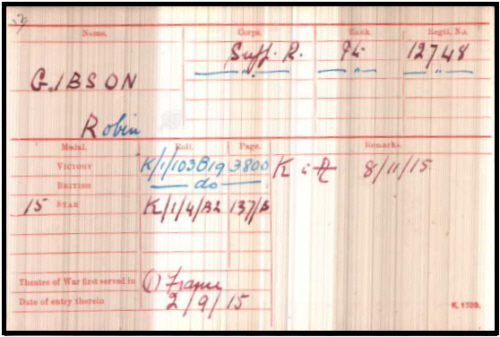 Name. Corps. Rank. Regtl. No.
Suff. R. Pte. 12748
" " "
GIBSON
Robin
Medal. Roll. Page. Remarks.
VICTORY K/1/103B19 3800 K in A 8/11/15
BRITISH do
15 STAR K/1/4/B2 137/B
Theatre of War first served in (1) France
Date of entry therein 2/9/15
K. 1780.